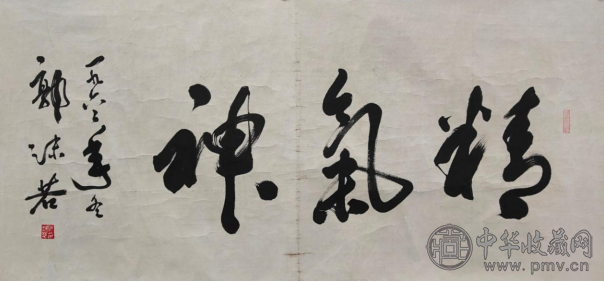 精氣神
一九六二年冬
郭沫若
中华收藏网
www.pmv.cn